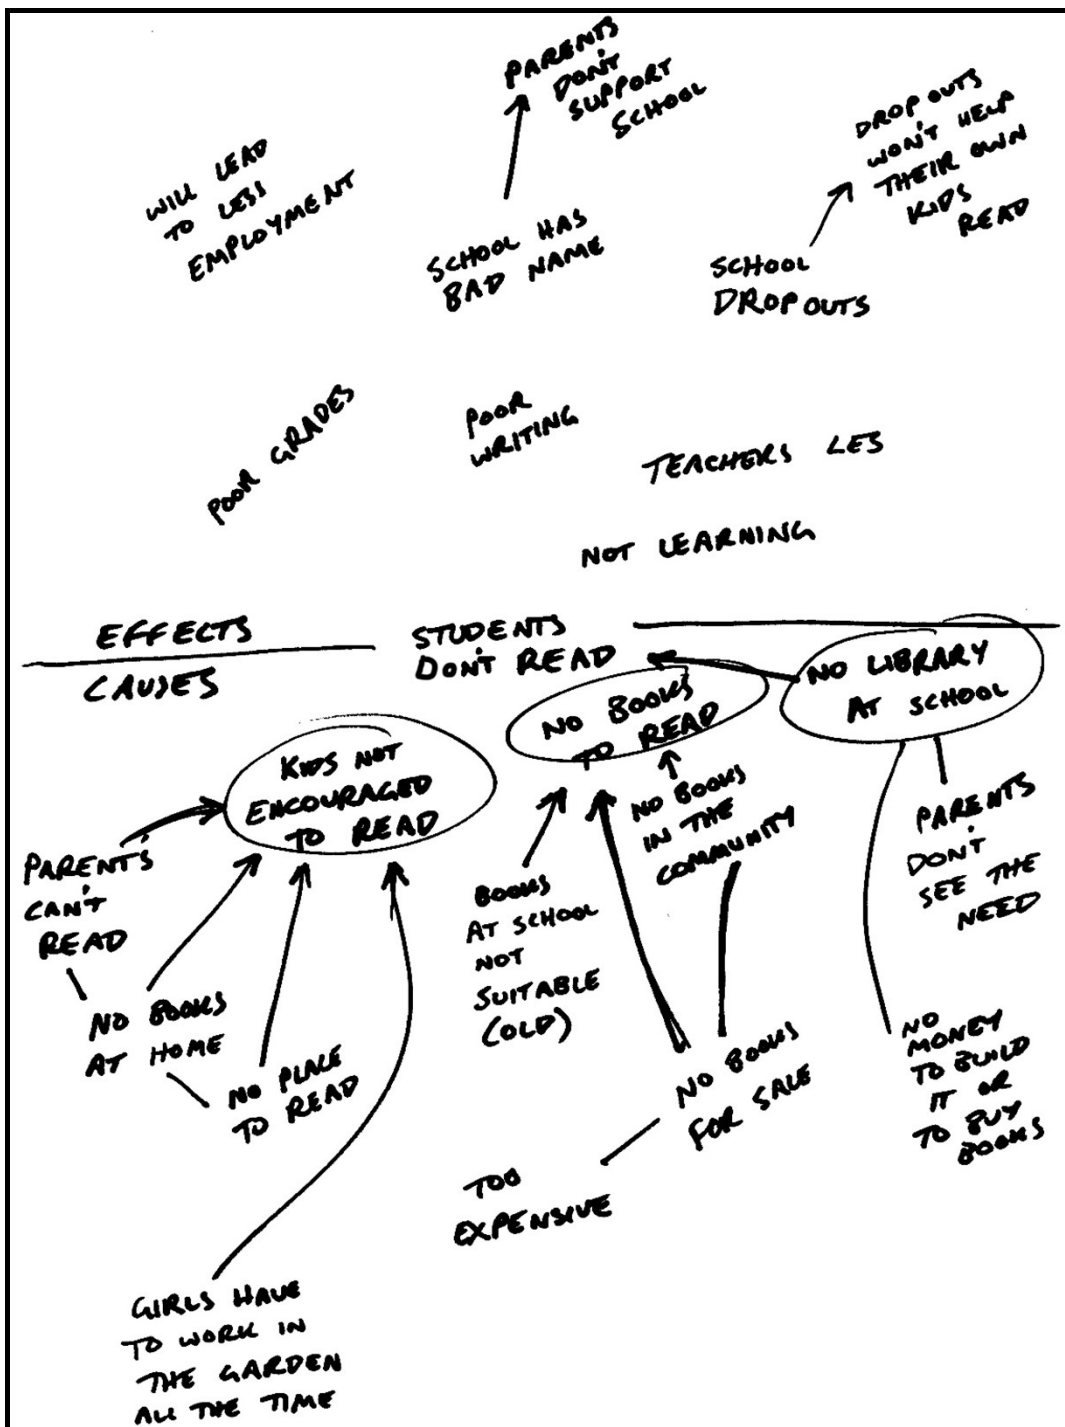 PARENTS
DON'T
SUPPORT
SCHOOL
DROPOUTS
WON'T HELP
THEIR OWN
KIDS
READ
WILL LEAD
TO LESS
EMPLOYMENT
SCHOOL HAS
BAD NAME
SCHOOL
DROPOUTS
POOR GRADES
POOR
WRITING
TEACHERS LES
NOT LEARNING
EFFECTS
CAUSES
STUDENTS
DON'T READ
NO LIBRARY
AT SCHOOL
NO BOOKS
TO READ
KIDS NOT
ENCOURAGED
TO READ
NO BOOKS
IN THE
COMMUNITY
PARENTS
DON'T
SEE THE
NEED
PARENT'S
CAN'T
READ
BOOKS
AT SCHOOL
NOT
SUITABLE
(OLD)
NO BOOKS
AT HOME
NO PLACE
TO READ
NO BOOKS
FOR SALE
NO
MONEY
TO BUILD
IT OR
TO BUY
BOOKS
TOO
EXPENSIVE
GIRLS HAVE
TO WORK IN
THE GARDEN
ALL THE TIME